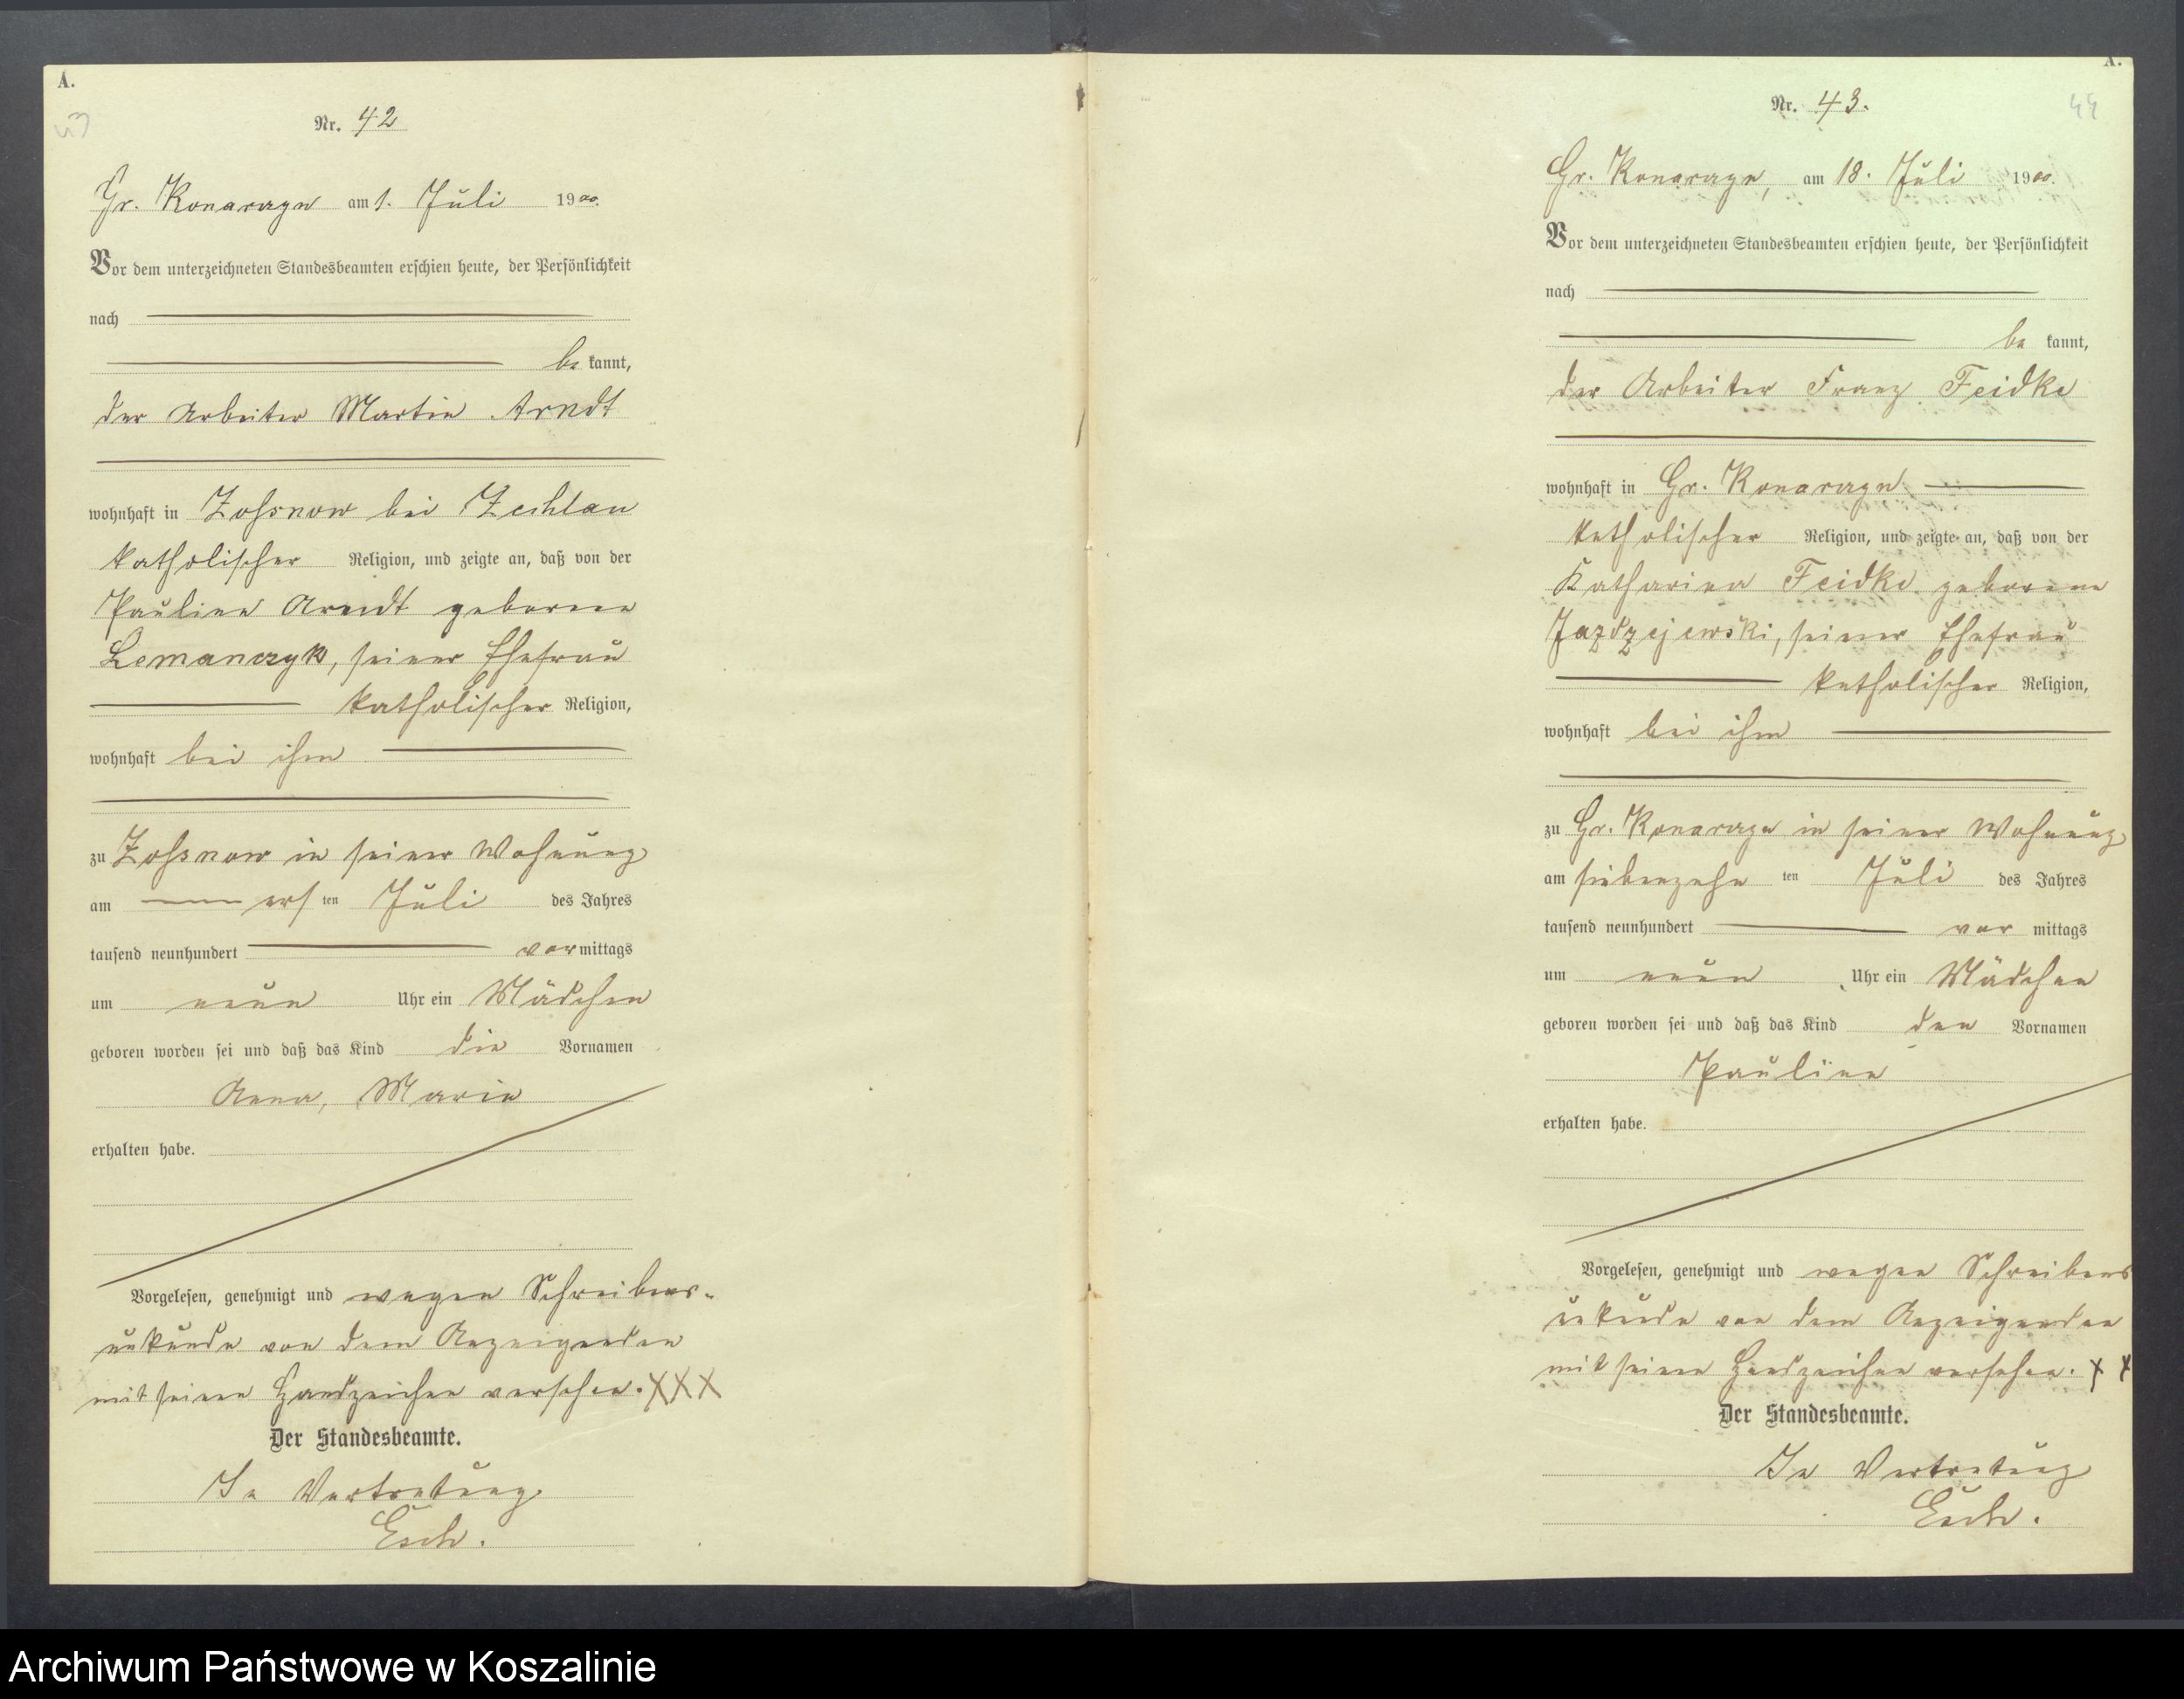 A.
43
Nr. 42
Gr. Konarzyn am 1. Juli 1900.
Vor dem unterzeichneten Standesbeamten erschien heute, der Persönlichkeit
nach
be kannt,
der Arbeiter Martin Arndt
wohnhaft in Zossnow bei Zechlau
katholischer Religion, und zeigte an, daß von der
Pauline Arndt geborene
Lemanczyk, seiner Ehefrau
katholischer Religion,
wohnhaft bei ihm
zu Zossnow in seiner Wohnung
am ers ten Juli des Jahres
tausend neunhundert vor mittags
um neun Uhr ein Mädchen
geboren worden sei und daß das Kind die Vornamen
Anna, Marie
erhalten habe.
Vorgelesen, genehmigt und wegen Schreibens-
unkunde von dem Anzeigenden
mit seinen Handzeichen versehen. XXX
Der Standesbeamte.
In Vertretung
Esch.
A.
44
Nr. 43.
Gr. Konarzyn, am 18. Juli 1900.
Vor dem unterzeichneten Standesbeamten erschien heute, der Persönlichkeit
nach
be kannt,
der Arbeiter Franz Feidke
wohnhaft in Gr. Konarzyn
katholischer Religion, und zeigte an, daß von der
Katharina Feidke geborene
Jazdzejewski, seiner Ehefrau
katholischer Religion,
wohnhaft bei ihm
zu Gr. Konarzyn in seiner Wohnung
am siebenzehn ten Juli des Jahres
tausend neunhundert vor mittags
um neun Uhr ein Mädchen
geboren worden sei und daß das Kind den Vornamen
Pauline
erhalten habe.
Vorgelesen, genehmigt und wegen Schreibens
unkunde von dem Anzeigenden
mit seinen Handzeichen versehen. X X
Der Standesbeamte.
In Vertretung
Esch.
Archiwum Państwowe w Koszalinie